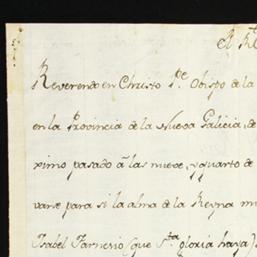 El Re
Reverendo en Christo Pe. Obispo de la
en la Provincia de la Nueva Galicia, de
ximo pasado â las nueve, y quarto de
varse para si la alma de la Reyna mi
Isabel Farnesio (que Sta. gloria haya)